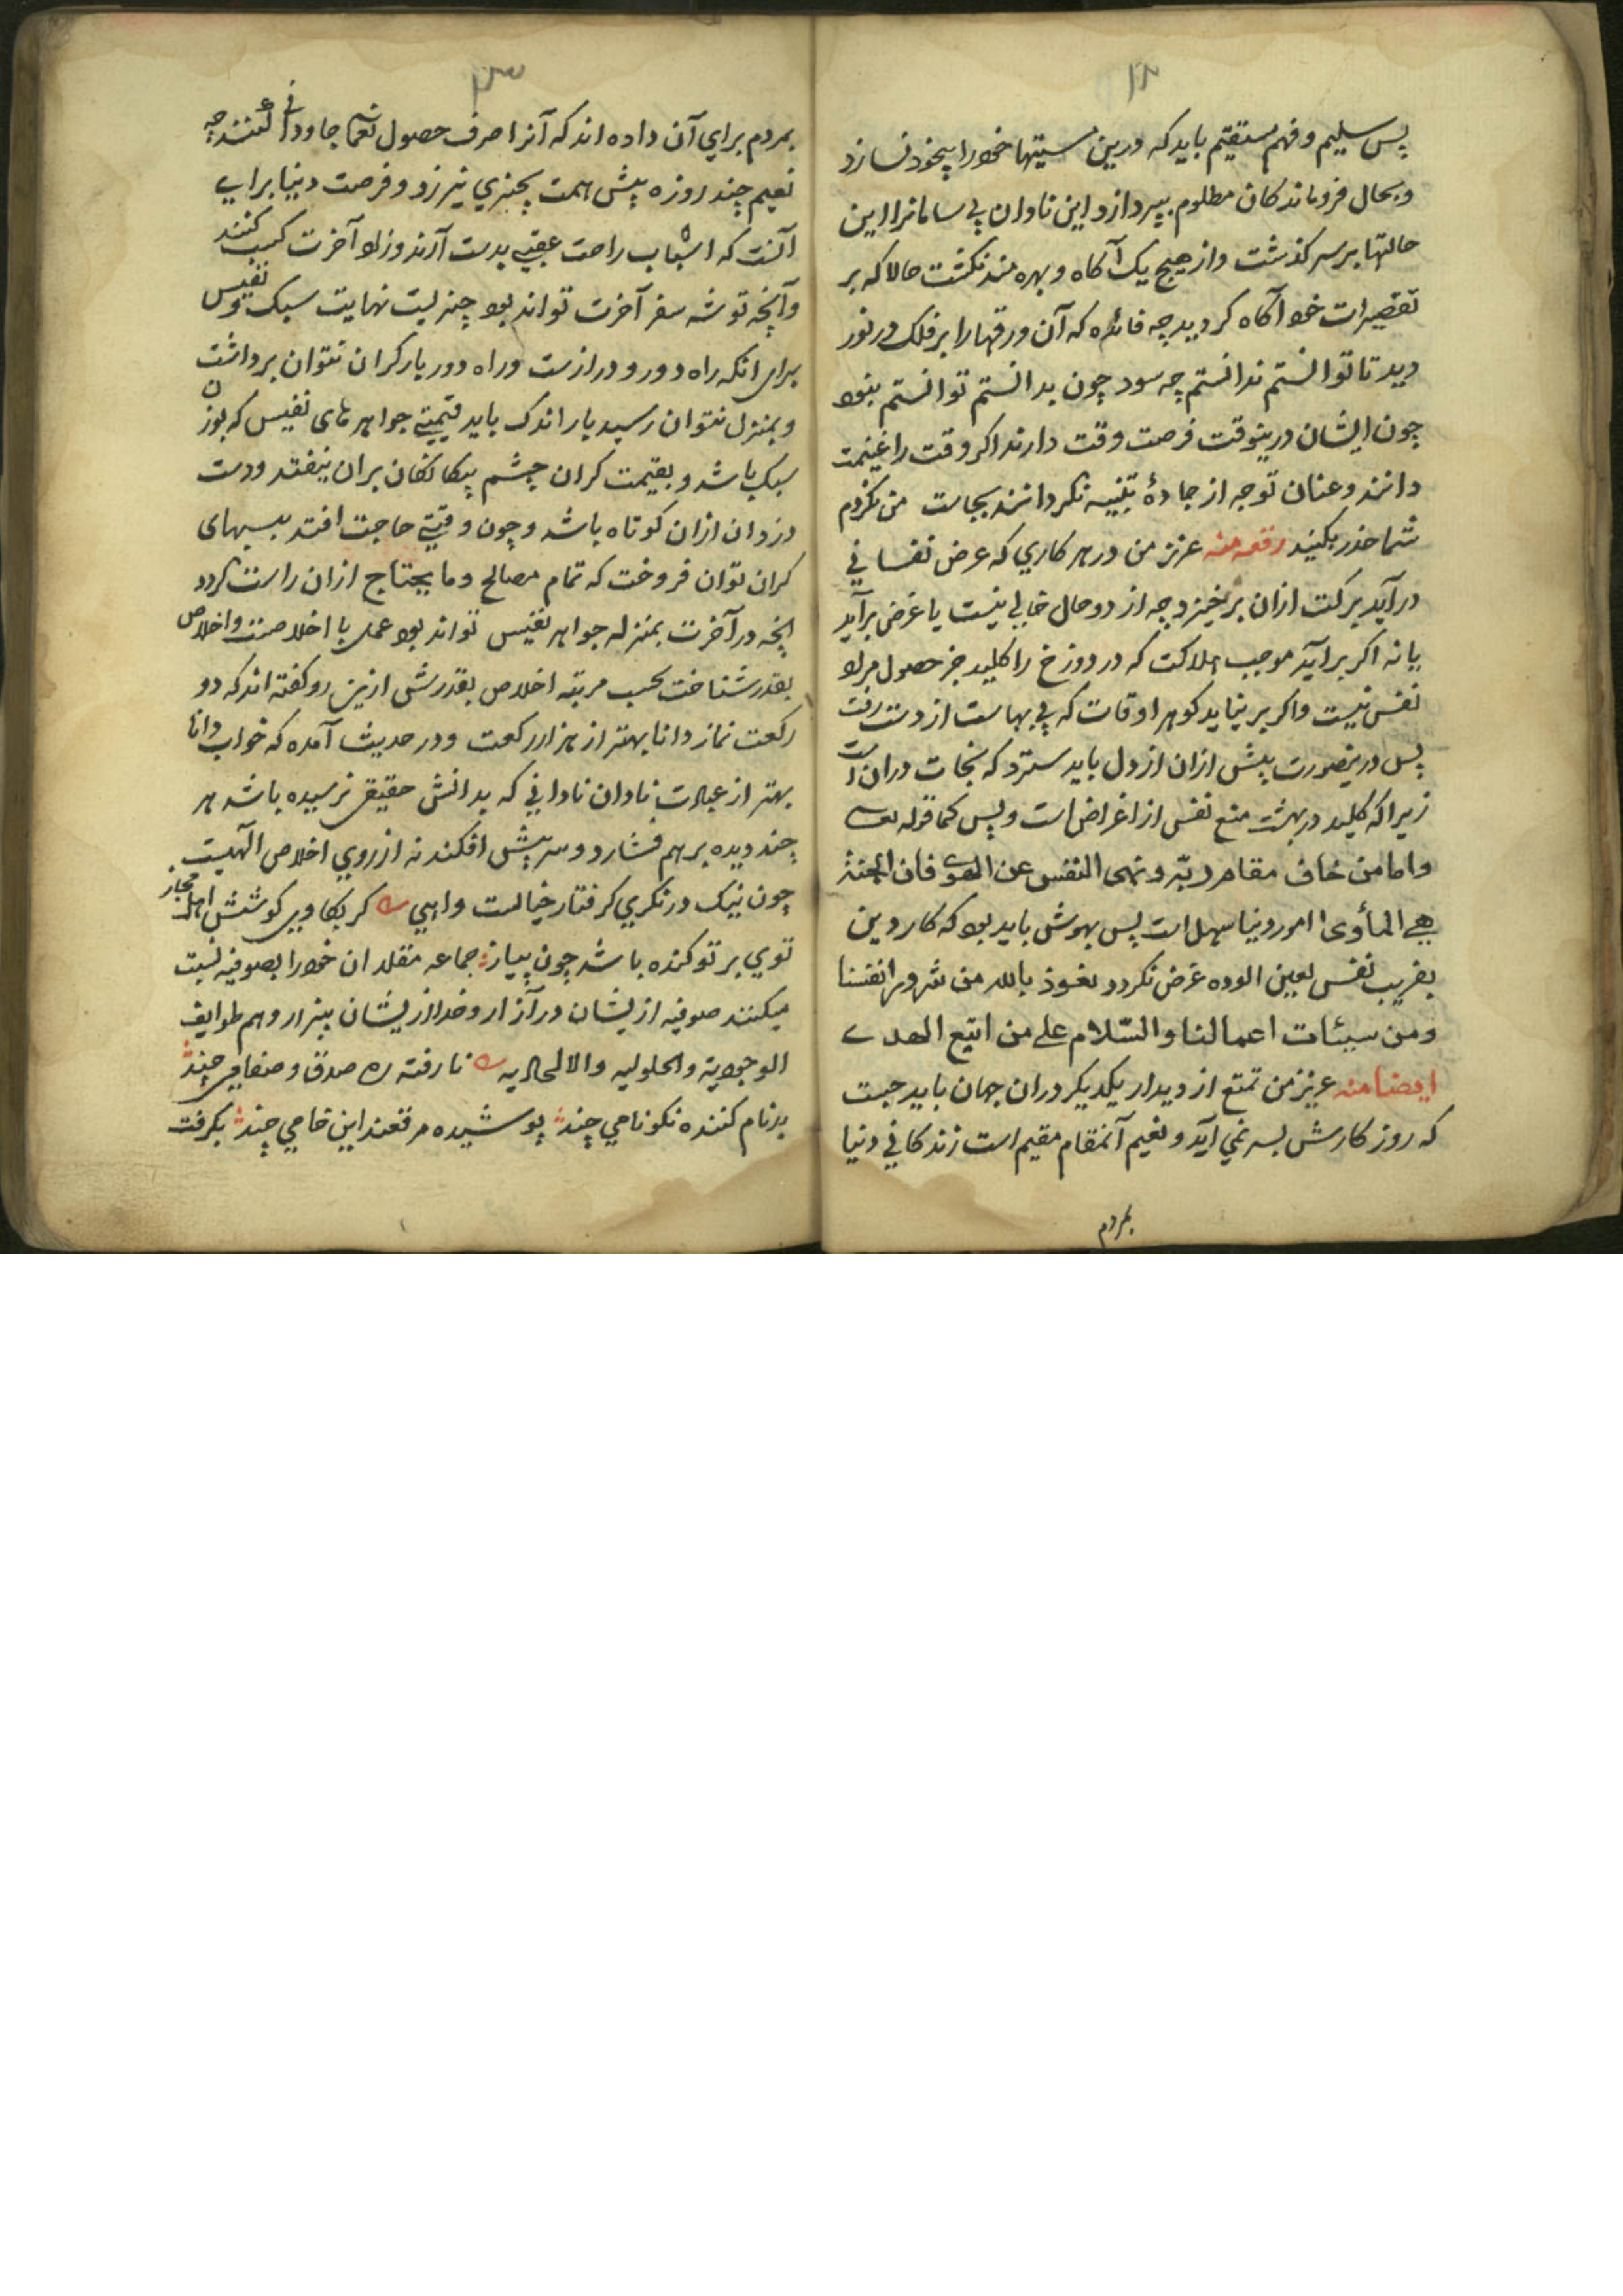 ۱۲
پس سلیم و فهم مستقیم باید که درین مستیها خود را بیخود نسازد
و بحال فروماندکان مطلوم بپردازد این نادان بی سامانرا این
حالتها بر سر کذشت و از هیچ یک آکاه و بهره مند نکشت حالا که بر
تقصیرات خود آکاه کردید چه فائده که آن ورقها را بر فلک در نور
دید تا توانستم ندانستم چه سود چون بدانستم توانستم نبود
چون ایشان درینوقت فرصت وقت دارند اکر وقت را غنیمت
دانند و عنان توجه از جادهٔ تنبیه نکردانند بجاست من نکردم
شما حذر بکنید رقعه منه عزیز من در هر کاري که غرض نفسانی
در آید برکت ازان برخیزد چه از دو حال خالي نیست یا غرض برآید
یا نه اکر برآید موجب هلاکت که در دوزخ را کلید جز حصول مراد
نفس نیست و اکر بر نیاید کوهر اوقات که بی بهاست از دست رفت
پس درینصورت پیش ازان از دل باید سترد که نجات دران است
زیرا که کلید در بهشت منع نفس از اغراض است و بس کما قوله تعالی
واما من خاف مقام ربّه ونهی النفس عن الهوی فان الجنة
هی المأوی امور دنیا سهل است پس بهوش باید بود که کار دین
بفریب نفس لعین الوده غرض نکردد نعوذ بالله من شرور انفسنا
ومن سیئات اعمالنا والسّلام علی من اتبع الهدی
ایضا منه عزیز من تمتع از دیدار یکدیکر دران جهان باید جست
که روز کارش بسر نمي آید و نعیم آنمقام مقیم است زندکانی دنیا
بمردم
۱۳
بمردم براي آن داده اند که آنرا صرف حصول نعماء جاودانی کنند چه
نعیم چند روزه پیش همت بچیزي نیرزد و فرصت دنیا براي
آنست که اسباب راحت عقبی بدست آرند و زاد آخرت کسب کنند
و آنچه توشه سفر آخرت تواند بود چیزیست نهایت سبک و نفیس
برای انکه راه دور و درازست و راه دور بار کران نتوان برداشت
و بمنزل نتوان رسید بار اندک باید قیمتی جواهر های نفیس که بوزن
سبک باشد و بقیمت کران چشم بیکانکان بران نیفتد و دست
دزدان ازان کوتاه باشد و چون وقتی حاجت افتد ببهای
کران توان فروخت که تمام مصالح و ما یحتاج ازان راست کردد
انچه در آخرت بمنزله جواهر نفیس تواند بود عمل با اخلاصست و اخلاص
بقدر شناخت بحسب مرتبه اخلاص بقدرش ازین رو کفته اند که دو
رکعت نماز دانا بهتر از هزار رکعت و در حدیث آمده که خواب دانا
بهتر از عبادت نادان نادانی که بدانش حقیقی نرسیده باشد هر
چند دیده برهم فشارد و سر پیش افکند نه از روي اخلاص الهیست
چون نیک در نکري کرفتار خیالست و اهي کر بکاوي کوشش اهل مجاز
توي بر تو کنده باشد چون پیاز جماعه مقلدان خود را بصوفیه نسبت
میکنند صوفیه ازیشان در آزار و خدا ازیشان بیزار و هم طوایف
الوجودیة والحلولیه والالحادیه نا رفته ره صدق و صفا کامی چند
بدنام کننده نکونامي چند پوشیده مرقعند این خامي چند بکرفت